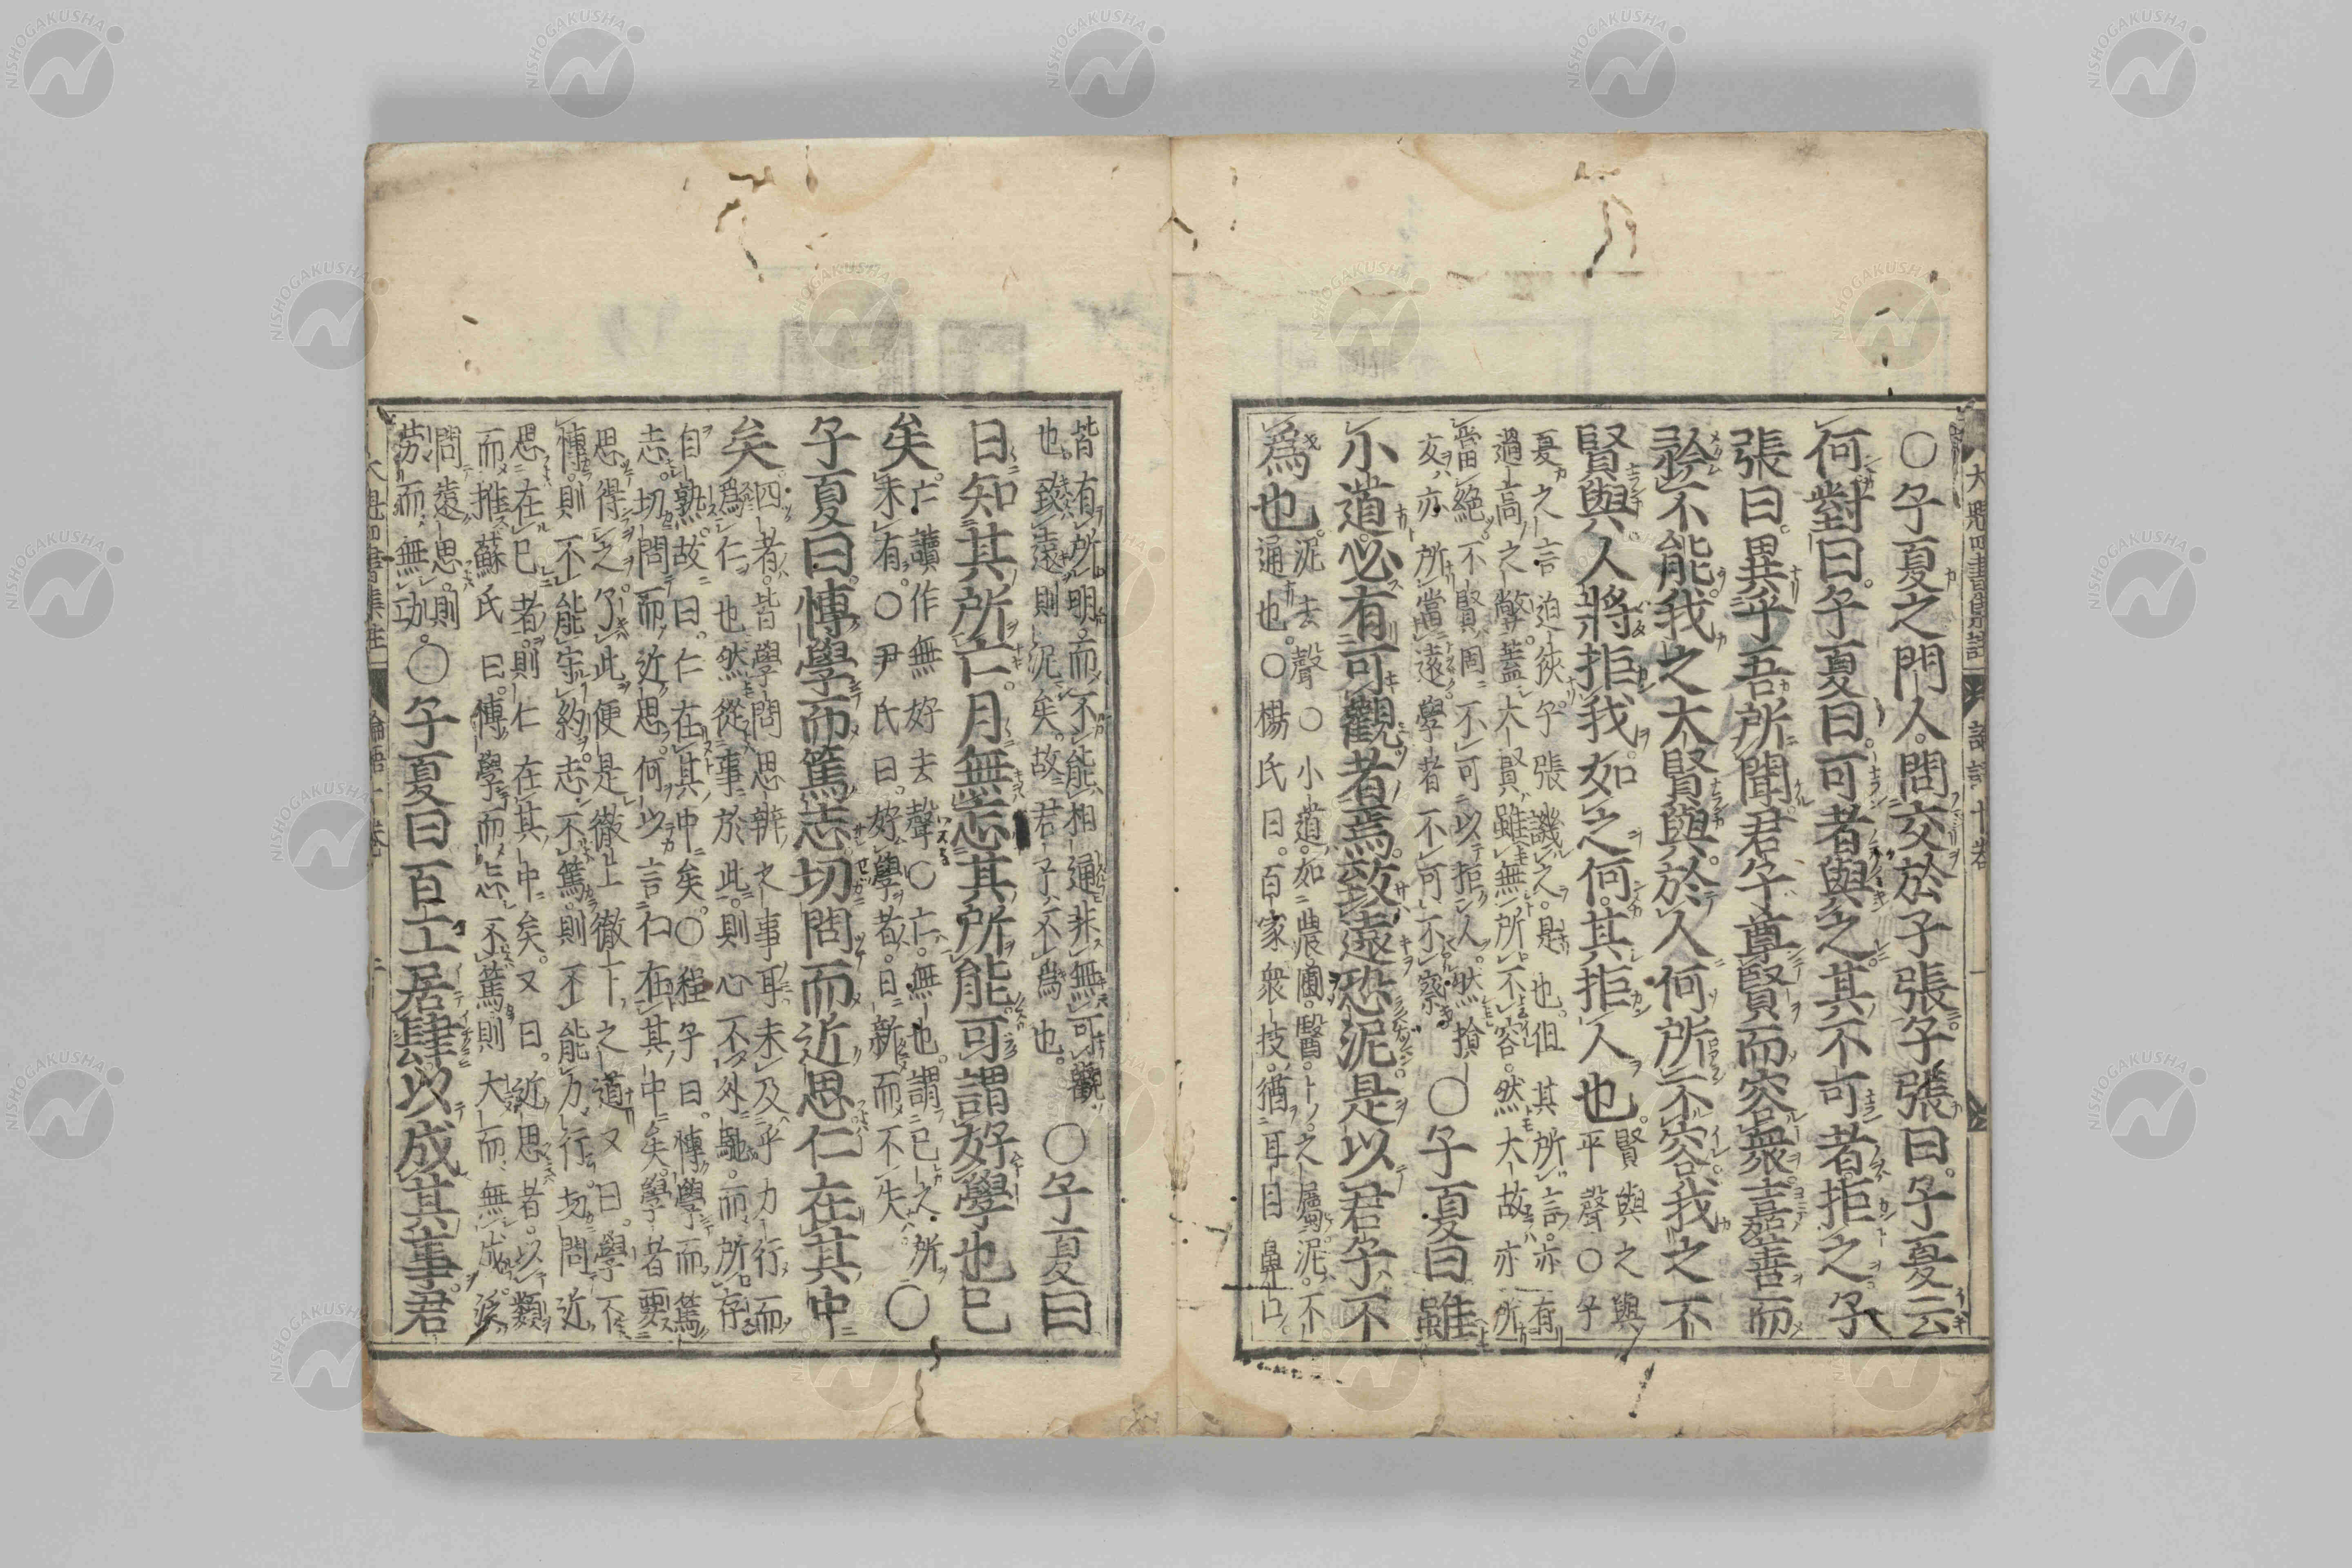 NISHOGAKUSHA
大魁四書集註 論語十卷 一
〇子夏之門人問交於子張子張曰子夏云
何對曰子夏曰可者與之其不可者拒之子
張曰異乎吾所聞君子尊賢而容衆嘉善而
矜不能我之大賢與於人何所不容我之不
賢與人將拒我如之何其拒人也
賢與之與
平聲〇子
夏之言迫狹子張譏之是也但其所言亦有
過高之弊蓋大賢雖無所不容然大故亦所
當絕不賢固不可以拒人然損
友亦所當遠學者不可不察
〇子夏曰雖
小道必有可觀者焉致遠恐泥是以君子不
爲也
泥去聲〇小道如農圃醫卜之屬泥不
通也〇楊氏曰百家衆技猶耳目鼻口
皆有所明而不能相通非無可觀
也致遠則泥矣故君子不爲也
〇子夏曰
日知其所亡月無忘其所能可謂好學也已
矣
亡讀作無好去聲〇亡無也謂已之所
未有〇尹氏曰好學者日新而不失
〇
子夏曰博學而篤志切問而近思仁在其中
矣
四者皆學問思辨之事耳未及乎力行而
爲仁也然從事於此則心不外馳而所存
自熟故曰仁在其中矣〇程子曰博學而篤
志切問而近思何以言仁在其中矣學者要
思得之了此便是徹上徹下之道又曰學不
博則不能守約志不篤則不能力行切問近
思在已者則仁在其中矣又曰近思者以類
而推蘇氏曰博學而志不篤則大而無成泛
問遠思則
勞而無功
〇子夏曰百工居肆以成其事君
大魁四書集註 論語十卷